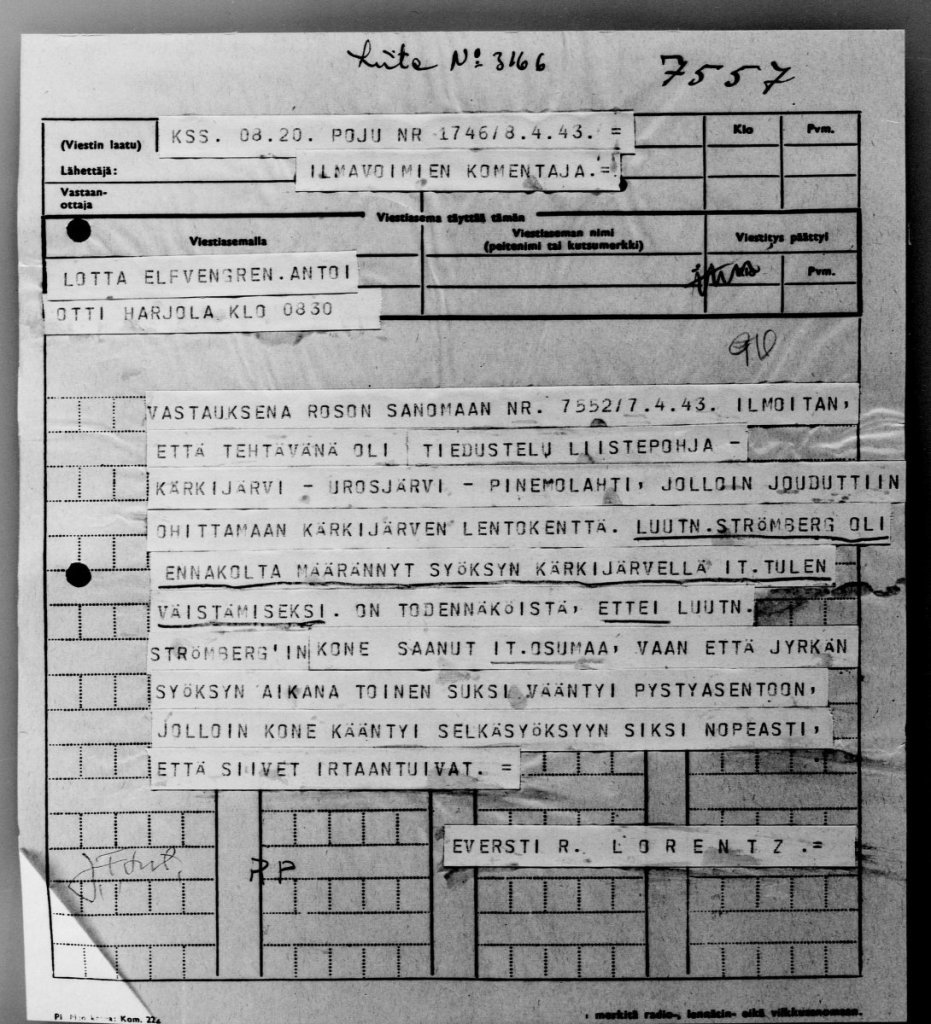 Liite No: 3166
7557
(Viestin laatu) KSS. 08.20. POJU NR 1746/8.4.43. =
Klo Pvm.
Lähettäjä: ILMAVOIMIEN KOMENTAJA.=
Vastaan-
ottaja
Viestiasema täyttää tämän
Viestiasemalla
Viestiaseman nimi
(peitenimi tai kutsumerkki)
Viestitys päättyi
Pvm.
LOTTA ELFVENGREN.ANTOI
OTTI HARJOLA KLO 0830
VASTAUKSENA ROSON SANOMAAN NR. 7552/7.4.43. ILMOITAN,
ETTÄ TEHTÄVÄNÄ OLI TIEDUSTELU LIISTEPOHJA -
KÄRKIJÄRVI - UROSJÄRVI - PINEMOLAHTI, JOLLOIN JOUDUTTIIN
OHITTAMAAN KÄRKIJÄRVEN LENTOKENTTÄ. LUUTN.STRÖMBERG OLI
ENNAKOLTA MÄÄRÄNNYT SYÖKSYN KÄRKIJÄRVELLÄ IT.TULEN
VÄISTÄMISEKSI. ON TODENNÄKÖISTÄ, ETTEI LUUTN.
STRÖMBERG'IN KONE SAANUT IT.OSUMAA, VAAN ETTÄ JYRKÄN
SYÖKSYN AIKANA TOINEN SUKSI VÄÄNTYI PYSTYASENTOON,
JOLLOIN KONE KÄÄNTYI SELKÄSYÖKSYYN SIKSI NOPEASTI,
ETTÄ SIIVET IRTAANTUIVAT. =
EVERSTI R. LORENTZ.=
P.P.
Kom. 22a
merkitä radio-, lennätin- eikä viikkusanomaan.